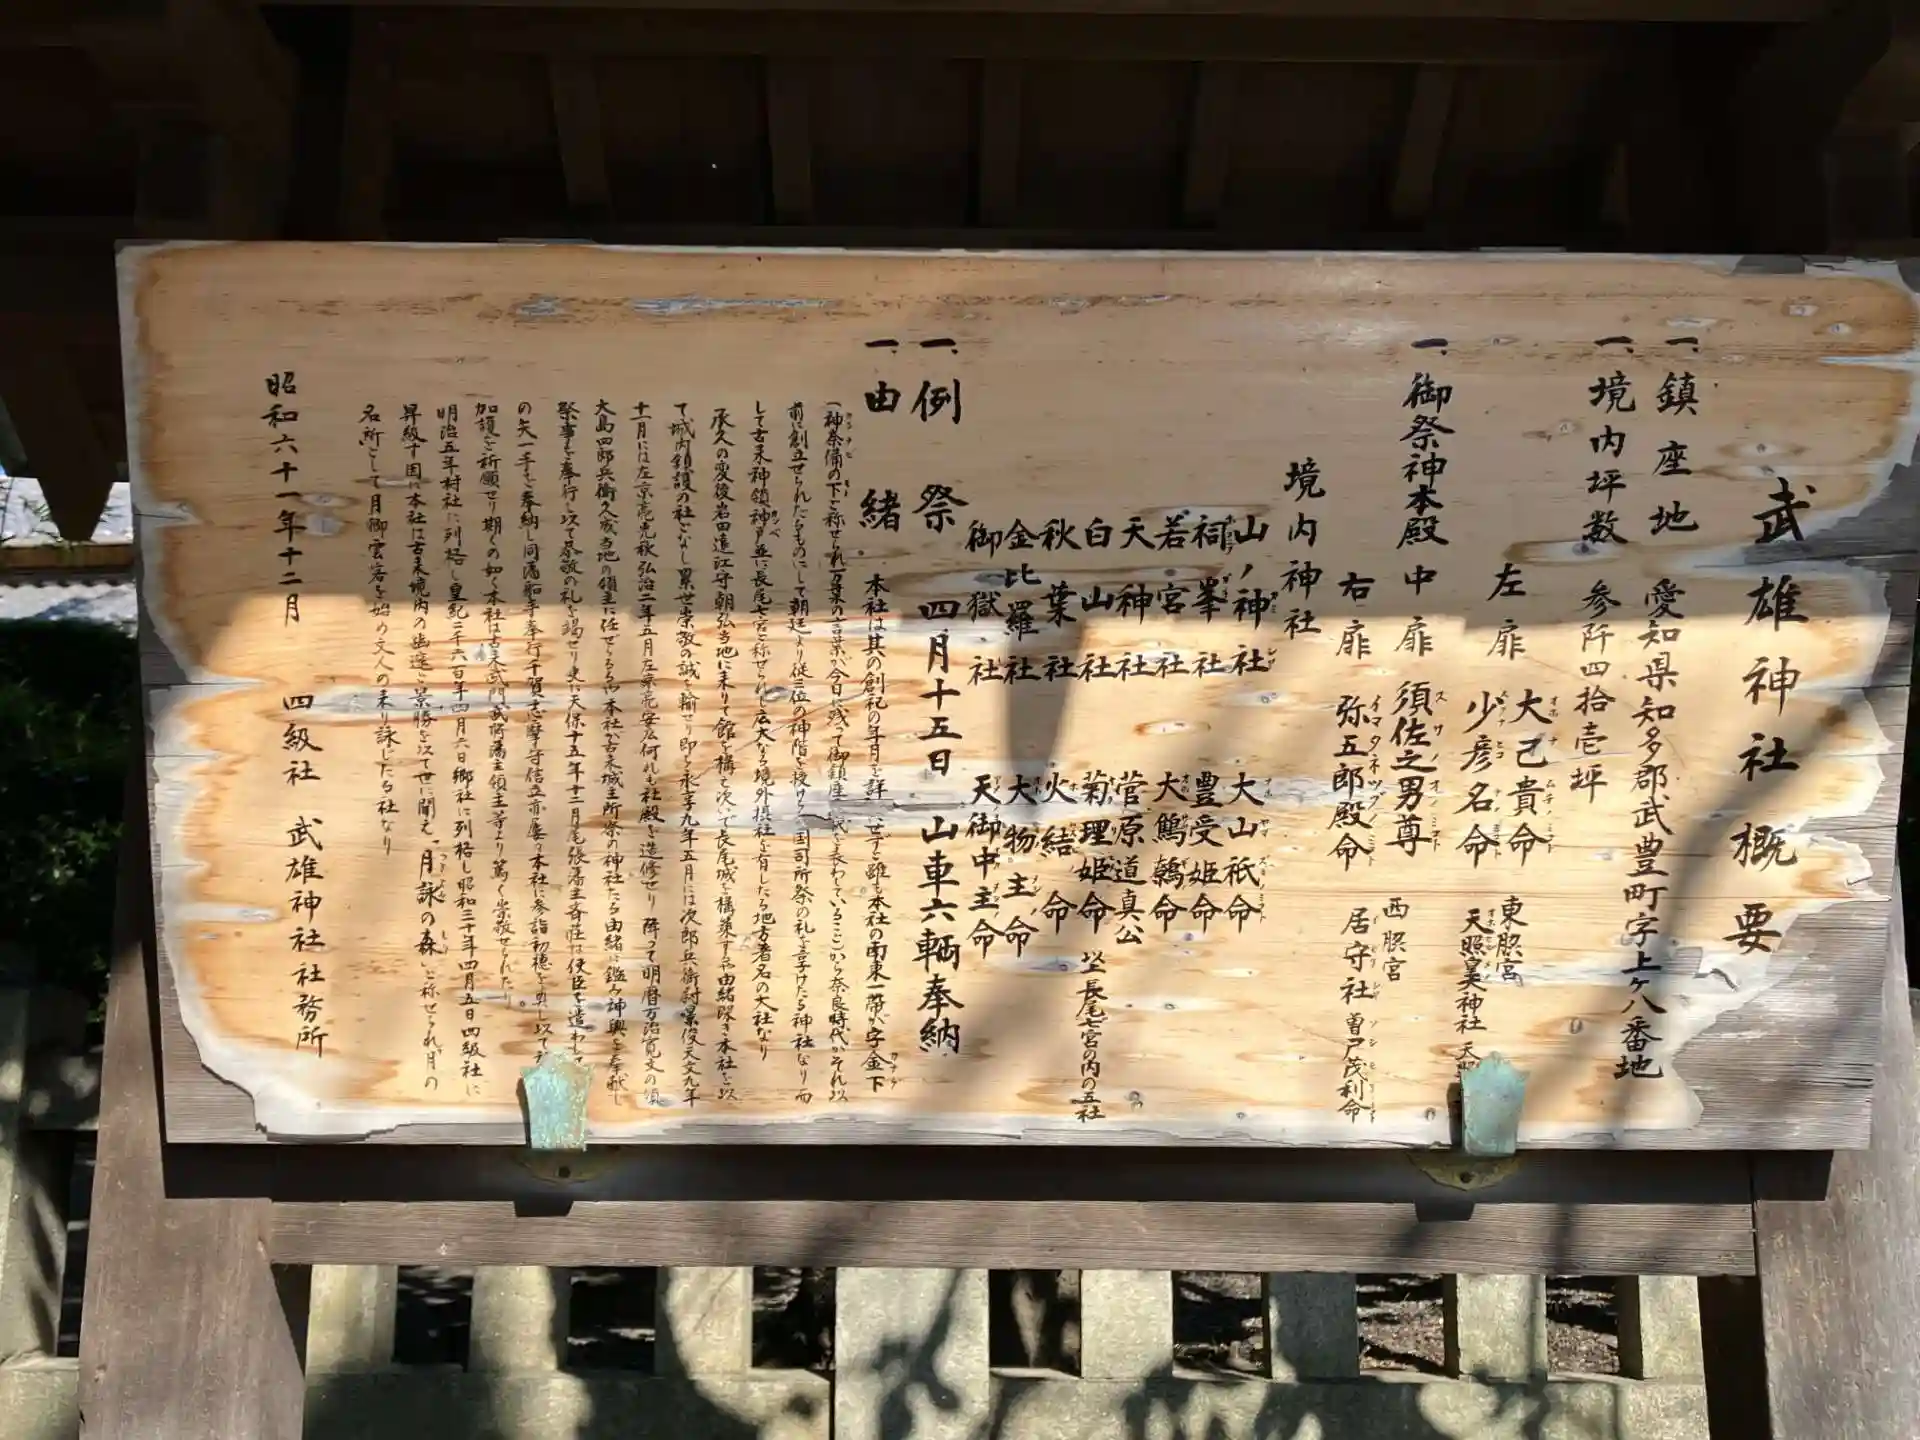 武雄神社概要
一、鎮座地 愛知県知多郡武豊町字上ヶ八番地
一、境内坪数 参阡四拾壱坪
一、御祭神本殿中扉 須佐之男尊
左扉 大己貴命
少彦名命
右扉 弥五郎殿命
東脇宮 天照美神社
西脇宮 居守社 曽戸茂利命
境内神社
山ノ神社 大山祇命
祠峯社 豊受姫命
若宮社 大鷦鷯命
天神社 菅原道真公
白山社 菊理姫命 以上長尾七宮の内の五社
秋葉社 火結命
金比羅社 大物主命
御獄社 天御中主命
一、例祭 四月十五日 山車六輌奉納
一、由緒 本社は其の創祀の年月を詳にせずと雖も本社の南東一帯が字金下
(神奈備の下と称せられ万葉の言葉が今日に残って御鎮座の歳を表わしていること)から奈良時代かそれ以
前に創立せられたるものにして朝廷より従三位の神階を授けられ国司所祭の礼を享けたる神社なり而
して古来神領神戸並に長尾七宮と称せられし広大なる境外摂社を有したる地方著名の大社なり
承久の変後岩田遠江守朝弘当地に来りて館を構え次で長尾城を構築するや由緒深き本社を以
て城内鎮護の社となし累世崇敬の誠を輸せり即ち永享九年五月には次郎兵衛尉景俊天文九年
十一月には左京亮光秋弘治二年五月左京亮安広何れも社殿を造修せり 降って明暦万治寛文の頃
大島四郎兵衛久成当地の領主に任ぜらるるや本社が古来城主所祭の神社たる由緒に鑑み神輿を奉献し
祭事を奉行し以て恭敬の礼を竭せり更に天保十五年十二月尾張藩主斉荘は使臣を遣わして
の矢一手を奉納し同藩船手奉行千賀志摩守信立亦屡々本社に参詣初穂を奠し以て
加護を祈願せり期くの如く本社は古来武門武将藩主領主等より篤く崇敬せられたり
明治五年村社に列格し皇紀二千六百年四月六日郷社に列格し昭和三十年四月五日四級社に
昇級す因に本社は古来境内の幽邃と景勝を以て世に聞え「月詠の森」と称せられ月の
名所として月卿雲客を始め文人の来り詠じたる社なり
昭和六十一年十二月 四級社 武雄神社社務所